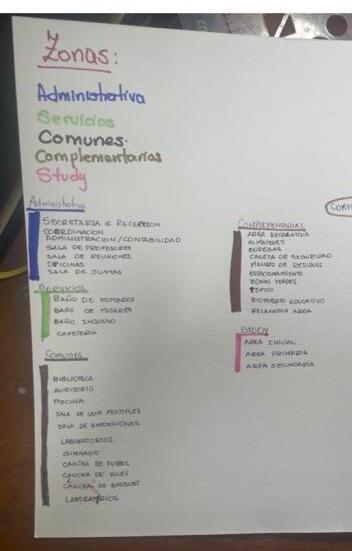 Zonas:
Administrativa
Servicios
Comunes.
Complementarias
Study
Administrativa
SECRETARIA E RECEPCION
COORDINACION
ADMINISTRACION/CONTABILIDAD
SALA DE PROFESORES
SALA DE REUNIONES
OFICINAS
SALA DE JUNTAS
SERVICIOS
BAÑO DE HOMBRES
BAÑO DE MUJERES
BAÑO INCLUSIVO
CAFETERÍA
Comunes
BIBLIOTECA
AUDITORIO
PISCINA
SALA DE USOS MULTIPLES
SALA DE EXPOSICIONES
LABORATORIOS
GIMNASIO
CANCHA DE FUTBOL
CANCHA DE VOLEY
CANCHA DE BASQUET
LABORATORIOS
COMP
COMPLEMENTARIAS
AREA RECREATIVA
ALMACENES
BODEGAS
CASETA DE SEGURIDAD
MANEJO DE RESIDUOS
ESTACIONAMIENTO
ZONAS VERDES
TOPICO
BIOHUERTO EDUCATIVO
RELAXATION AREA
STUDY
AREA INICIAL
AREA PRIMARIA
AREA SECUNDARIA